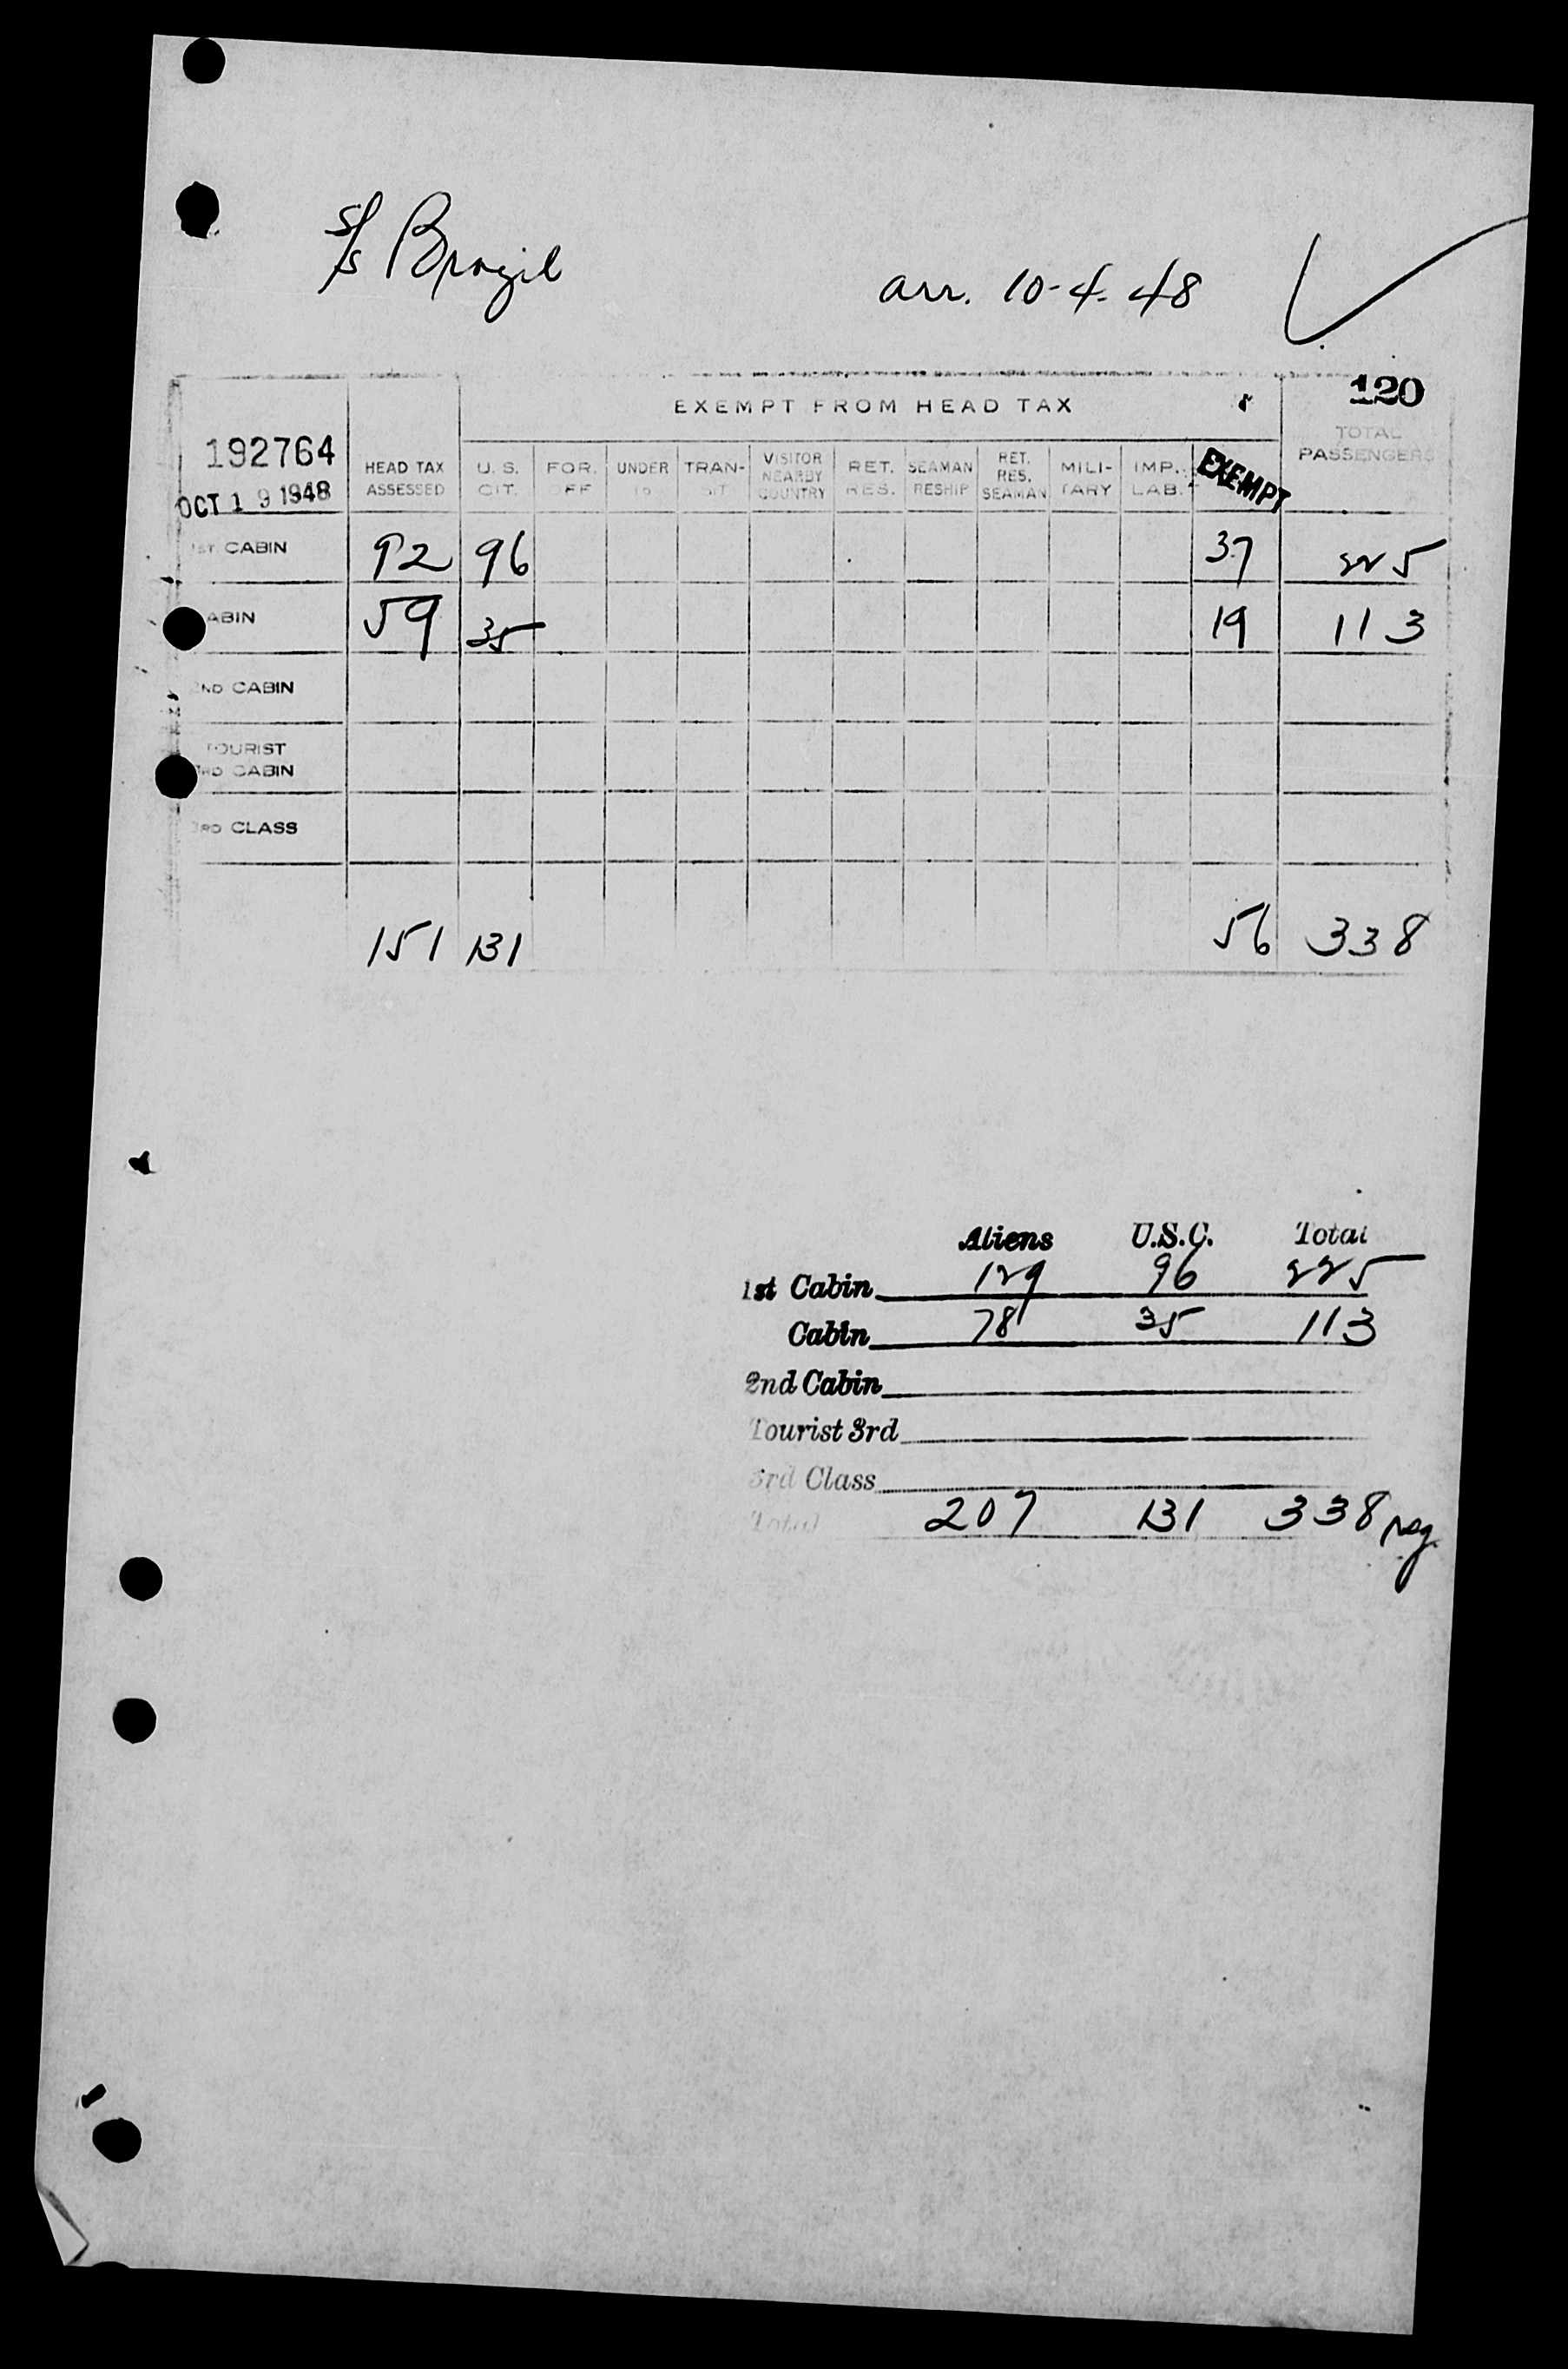 S/S Brazil
arr. 10-4-48
120
EXEMPT FROM HEAD TAX
192764
OCT 19 1948
HEAD TAX ASSESSED
U. S. CIT.
FOR. EFF
UNDER 16
TRAN- SIT
VISITOR NEARBY COUNTRY
RET. RES.
SEAMAN RESHIP
RET. RES. SEAMAN
MILI- TARY
IMP. LAB.
EXEMPT
TOTAL PASSENGERS
1ST CABIN 92 96 37 225
CABIN 59 35 19 113
2ND CABIN
TOURIST
3RD CABIN
3RD CLASS
151 131 56 338
Aliens U.S.C. Total
1st Cabin 129 96 225
Cabin 78 35 113
2nd Cabin
Tourist 3rd
3rd Class
Total 207 131 338